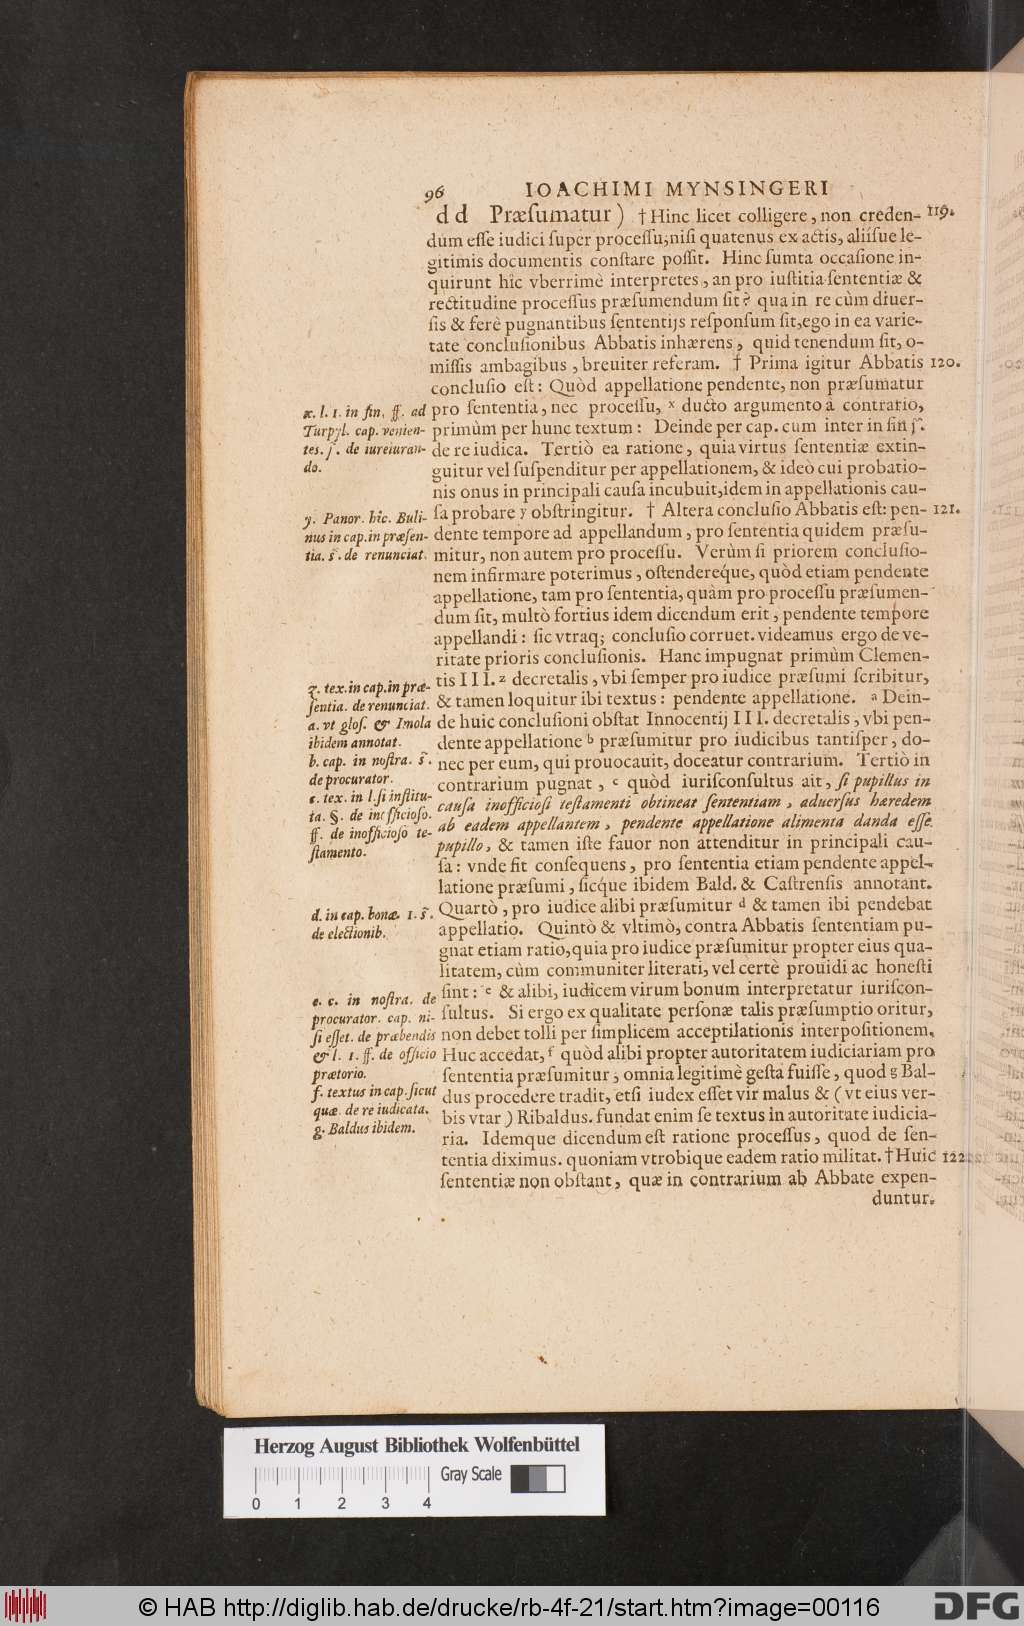 96 IOACHIMI MYNSINGERI
d d Præſumatur) † Hinc licet colligere, non creden- 119.
dum eſſe iudici ſuper proceſſu, niſi quatenus ex actis, aliiſue le-
gitimis documentis conſtare poſſit. Hinc ſumta occaſione in-
quirunt hîc vberrimè interpretes, an pro iuſtitia ſententiæ &
rectitudine proceſſus præſumendum ſit? qua in re cùm diuer-
ſis & ferè pugnantibus ſententijs reſponſum ſit, ego in ea varie-
tate concluſionibus Abbatis inhærens, quid tenendum ſit, o-
miſſis ambagibus, breuiter referam. † Prima igitur Abbatis 120.
concluſio eſt: Quòd appellatione pendente, non præſumatur
pro ſententia, nec proceſſu, x ducto argumento à contrario,
primùm per hunc textum: Deinde per cap. cum inter in fin ſ.
de re iudica. Tertiò ea ratione, quia virtus ſententiæ extin-
guitur vel ſuſpenditur per appellationem, & ideò cui probatio-
nis onus in principali cauſa incubuit, idem in appellationis cau-
ſa probare y obſtringitur. † Altera concluſio Abbatis eſt: pen- 121.
dente tempore ad appellandum, pro ſententia quidem præſu-
mitur, non autem pro proceſſu. Verùm ſi priorem concluſio-
nem infirmare poterimus, oſtendereq́ue, quòd etiam pendente
appellatione, tam pro ſententia, quàm pro proceſſu præſumen-
dum ſit, multò fortius idem dicendum erit, pendente tempore
appellandi: ſic vtraq; concluſio corruet. videamus ergo de ve-
ritate prioris concluſionis. Hanc impugnat primùm Clemen-
tis III. z decretalis, vbi ſemper pro iudice præſumi ſcribitur,
& tamen loquitur ibi textus: pendente appellatione. a Dein-
de huic concluſioni obſtat Innocentij III. decretalis, vbi pen-
dente appellatione b præſumitur pro iudicibus tantiſper, do-
nec per eum, qui prouocauit, doceatur contrarium. Tertiò in
contrarium pugnat, c quòd iuriſconſultus ait, ſi pupillus in
cauſa inofficioſi teſtamenti obtineat ſententiam, aduerſus hæredem
ab eadem appellantem, pendente appellatione alimenta danda eſſe
pupillo, & tamen iſte fauor non attenditur in principali cau-
ſa: vnde fit conſequens, pro ſententia etiam pendente appel-
latione præſumi, ſicq́ue ibidem Bald. & Caſtrenſis annotant.
Quartò, pro iudice alibi præſumitur d & tamen ibi pendebat
appellatio. Quintò & vltimò, contra Abbatis ſententiam pu-
gnat etiam ratio, quia pro iudice præſumitur propter eius qua-
litatem, cùm communiter literati, vel certè prouidi ac honeſti
ſint: e & alibi, iudicem virum bonum interpretatur iuriſcon-
ſultus. Si ergo ex qualitate perſonæ talis præſumptio oritur,
non debet tolli per ſimplicem acceptilationis interpoſitionem.
Huc accedat, f quòd alibi propter autoritatem iudiciariam pro
ſententia præſumitur, omnia legitimè geſta fuiſſe, quod g Bal-
dus procedere tradit, etſi iudex eſſet vir malus & (vt eius ver-
bis vtar) Ribaldus. fundat enim ſe textus in autoritate iudicia-
ria. Idemque dicendum eſt ratione proceſſus, quod de ſen-
tentia diximus. quoniam vtrobique eadem ratio militat. † Huic 122.
ſententiæ non obſtant, quæ in contrarium ab Abbate expen-
duntur.
x. l. 1. in fin. ff. ad
Turpyl. cap. venien-
tes. ſ. de iureiuran-
do.
y. Panor. hîc. Buli-
nus in cap. in præſen-
tia. s̃. de renunciat.
z. tex. in cap. in præ-
ſentia. de renunciat.
a. vt gloſ. & Imola
ibidem annotat.
b. cap. in noſtra. s̃.
de procurator.
c. tex. in l. ſi inſtitu-
ta. §. de inofficioſo.
ff. de inofficioſo te-
ſtamento.
d. in cap. bonæ. 1. s̃.
de electionib.
e. c. in noſtra. de
procurator. cap. ni-
ſi eſſet. de præbendis
& l. 1. ff. de officio
prætorio.
f. textus in cap. ſicut
quæ. de re iudicata.
g. Baldus ibidem.
Herzog August Bibliothek Wolfenbüttel
Gray Scale
0 1 2 3 4
© HAB http://diglib.hab.de/drucke/rb-4f-21/start.htm?image=00116
DFG